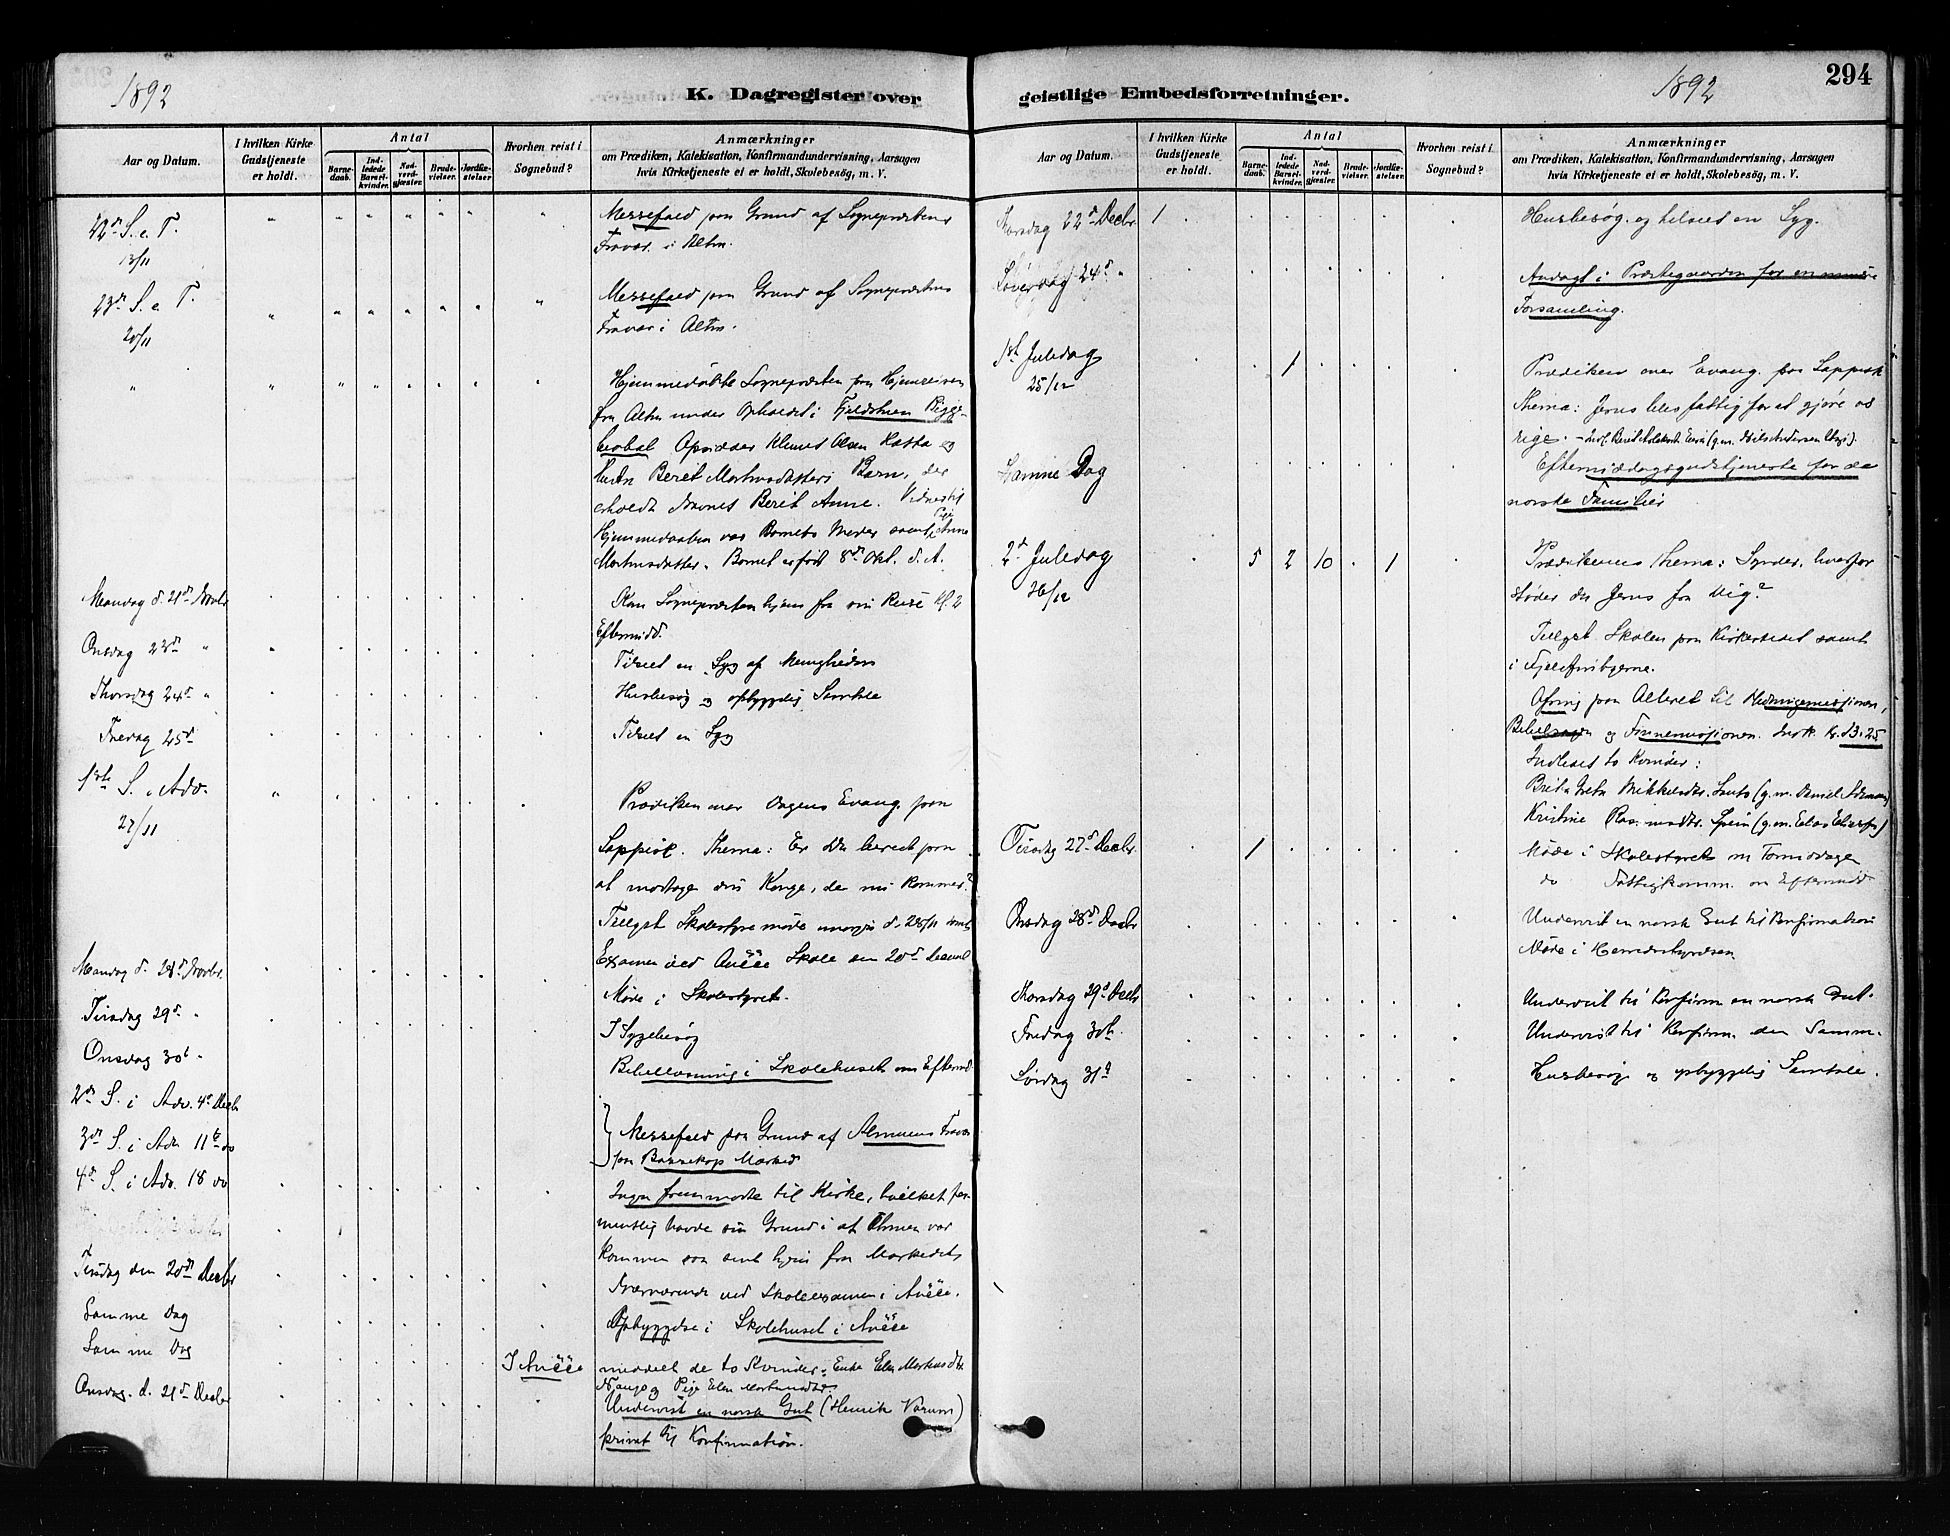 1892
K. Dagregister over
Aar og Datum.
I hvilken Kirke Gudstjeneste er holdt.
Antal
Barnedaab.
Indledede Barselkvinder.
Nadverdgjæster.
Brudevielser.
Jordfæstelser.
Hvorhen reist i Sognebud?
Anmærkninger
om Prædiken, Katekisation, Konfirmandundervisning, Aarsagen
hvis Kirketjeneste ei er holdt, Skolebesög, m. V.
22de S. e. T.
13/11
Messefald paa Grund af Sognepræstens
Fravær i Alten.
23de S. e T.
20/11
Messefald paa Grund af Sognepræstens
Fravær i Alten.
Hjemmedøbte Sognepræsten paa Hjemreisen
fra Alten under Opholdet i Fjeldstuen
Opsidder Klemet Olsen og
Hustru Berit Mortensdatters Barn, der
erholdt Navnet Berit Anne. Vidner til
Hjemmedaaben var Barnets Moder samt Pige Anne
Mortensdatter. Barnet er født 8de Okt. d. A.
Mandag d. 21de Novbr
Kom Sognepræsten hjem fra sin Reise Kl. 2
Eftermidd.
Onsdag 23de "
Tilset en Syg af Menigheden
Thorsdag 24de "
Husbesøg og opbyggelig Samtale
Fredag 25de
Tilset en Syg
1ste S. i Adv.
27/11
Prædiken over Dagens Evang. paa
Lappisk. Thema: Er Du beredt paa
at modtage din Konge, der nu kommer?
Tillyst Skolestyremøde d. 28/11 samt
Examen ved Skole den 20de Decemb
Mandag d. 28de Novbr.
Møde i Skolestyret.
Tirsdag 29de "
I Sygebesøg
Onsdag 30te "
Bibellæsning i Skolehuset om Efterm.
2den S. i Adv. 4de Decbr
3die S. i Adv 11te do
Messefald paa Grund af Almuens Fravær
paa Bossekop Marked
4de S. i Adv. 18 do
Ingen fremmødte til Kirke, hvilket for-
mentlig havde sin Grund i at Almuen var
kommen saa sent hjem fra Markedet
Tirsdag den 20de Decbr
Nærværende ved Skoleexamen i
Samme Dag
Opbyggelse i Skolehuset i
Samme Dag
meddelt de to Kvinder: Enke Elen
og Pige Elen
Onsdag. d. 21de Decbr
Undervist en norsk Gut (Henrik
privat til Konfirmation.
geistlige Embedsforretninger.
1892
294
Aar og Datum.
I hvilken Kirke Gudstjeneste er holdt.
Antal
Barnedaab.
Indledede Barselkvinder.
Nadverdgjæster.
Brudevielser.
Jordfæstelser.
Hvorhen reist i Sognebud?
Anmærkninger
om Prædiken, Katekisation, Konfirmandundervisning, Aarsagen
hvis Kirketjeneste ei er holdt, Skolebesög, m. V.
Torsdag 22de Decbr 1
Husbesøg og tilseet en Syg.
Løverdag 24de "
Andagt i Præstegaarden for en mindre
Forsamling.
1ste Juledag 1
25/12
Prædiken over Evang. paa Lappisk
Thema: Jesus blev fattig for at gjøre os
rige.
Samme Dag
Eftermiddagsgudstjeneste for de
norske Familier
2den Juledag 5 2 10 1
26/12
Prædikenens Thema: Synder, hvorfor
støder du Jesus fra Dig?
Tillyst Skolen paa Kirkestedet samt
i Fjeldbyerne.
Ofring paa Alteret til Hedningemissionen,
Bibelsagen og Finnemissionen. Indk. Kr. 13.25
Indledet to Kvinder:
Tirsdag 27de Decbr. 1
Møde i Skolestyret om Formiddagen
do Fattigkomm. om Eftermidd
Onsdag 28de Decbr
Undervist en norsk Gut til Konfirmation
Møde i Herredsstyrelsen
Thorsdag 29de Decbr
Undervist til Konfirm en norsk Gut.
Fredag 30te.
Undervist til Konfirm. den Samm.
Lørdag 31te
Husbesøg og opbyggelig Samtale.